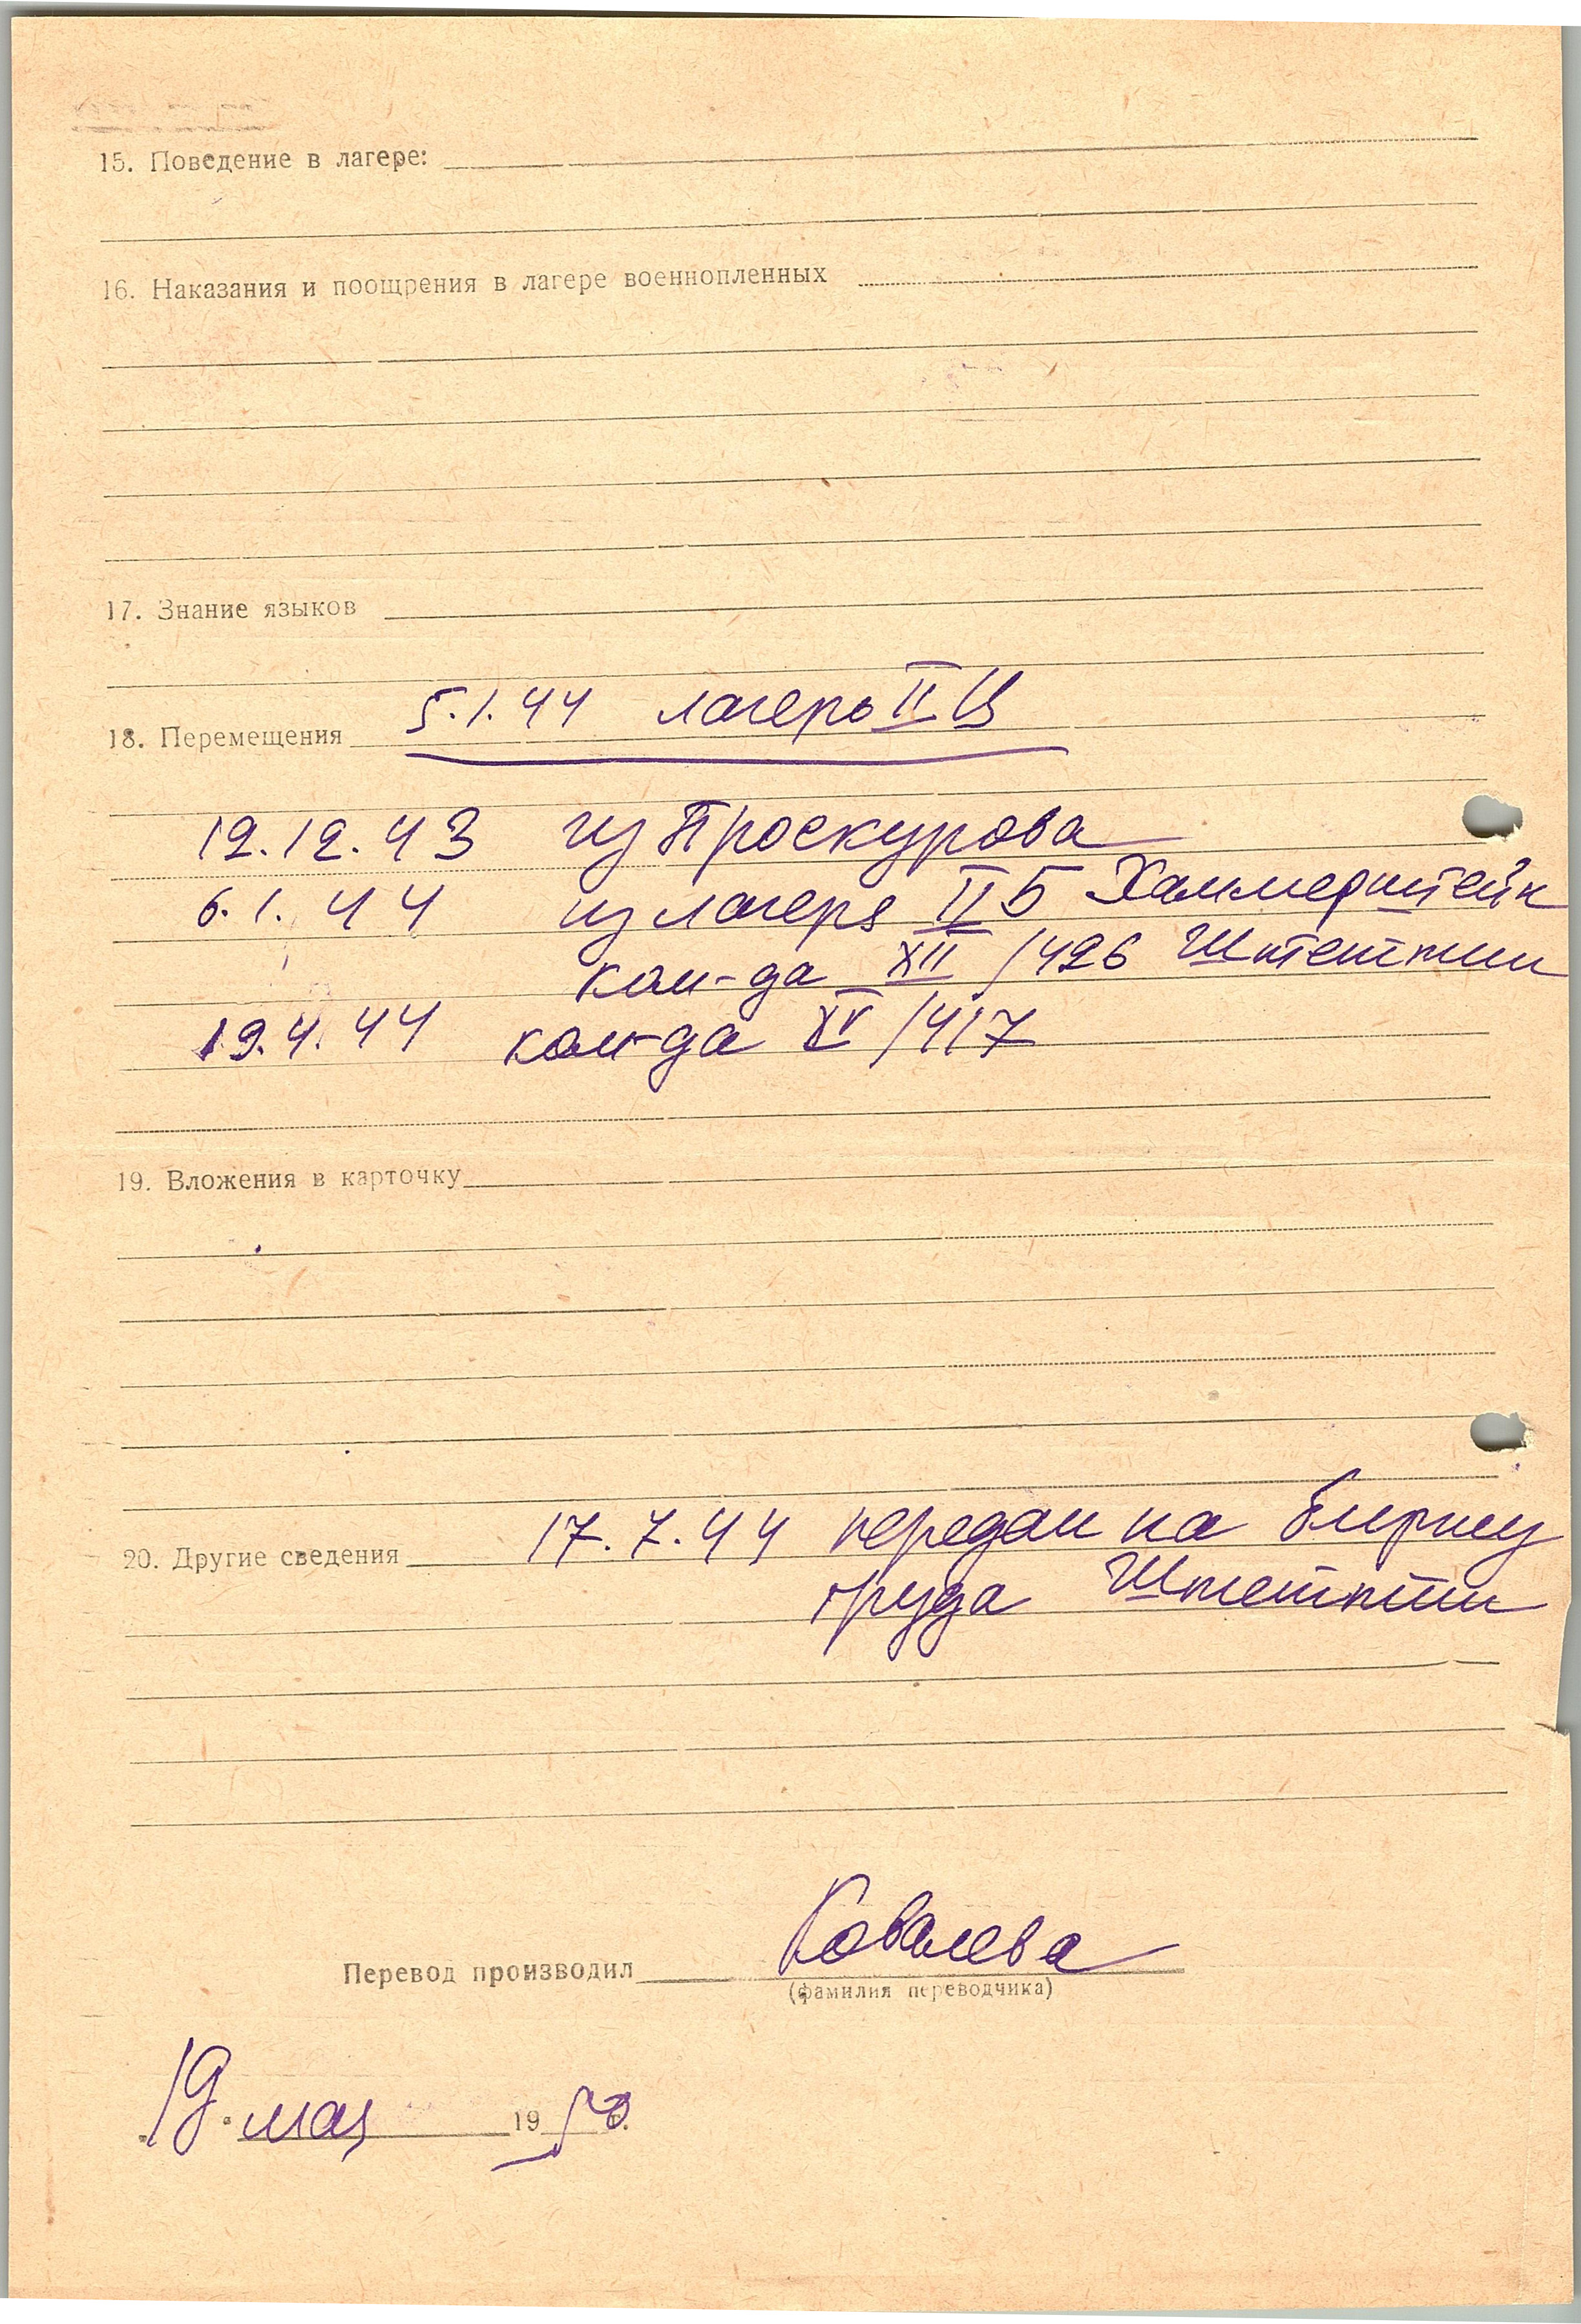 15. Поведение в лагере:
16. Наказания и поощрения в лагере военнопленных
17. Знание языков
18. Перемещения 5.1.44 лагерь II Ц
12.12.43 из Проскурова
6.1.44 из лагеря II Б Хаммерштейн
ком-да XII /426 Штеттин
19.4.44 ком-да XV /417
19. Вложения в карточку
20. Другие сведения 17.7.44 передан на биржу
труда Штеттин
Перевод производил Ковалева
(фамилия переводчика)
19 мая 1950 г.